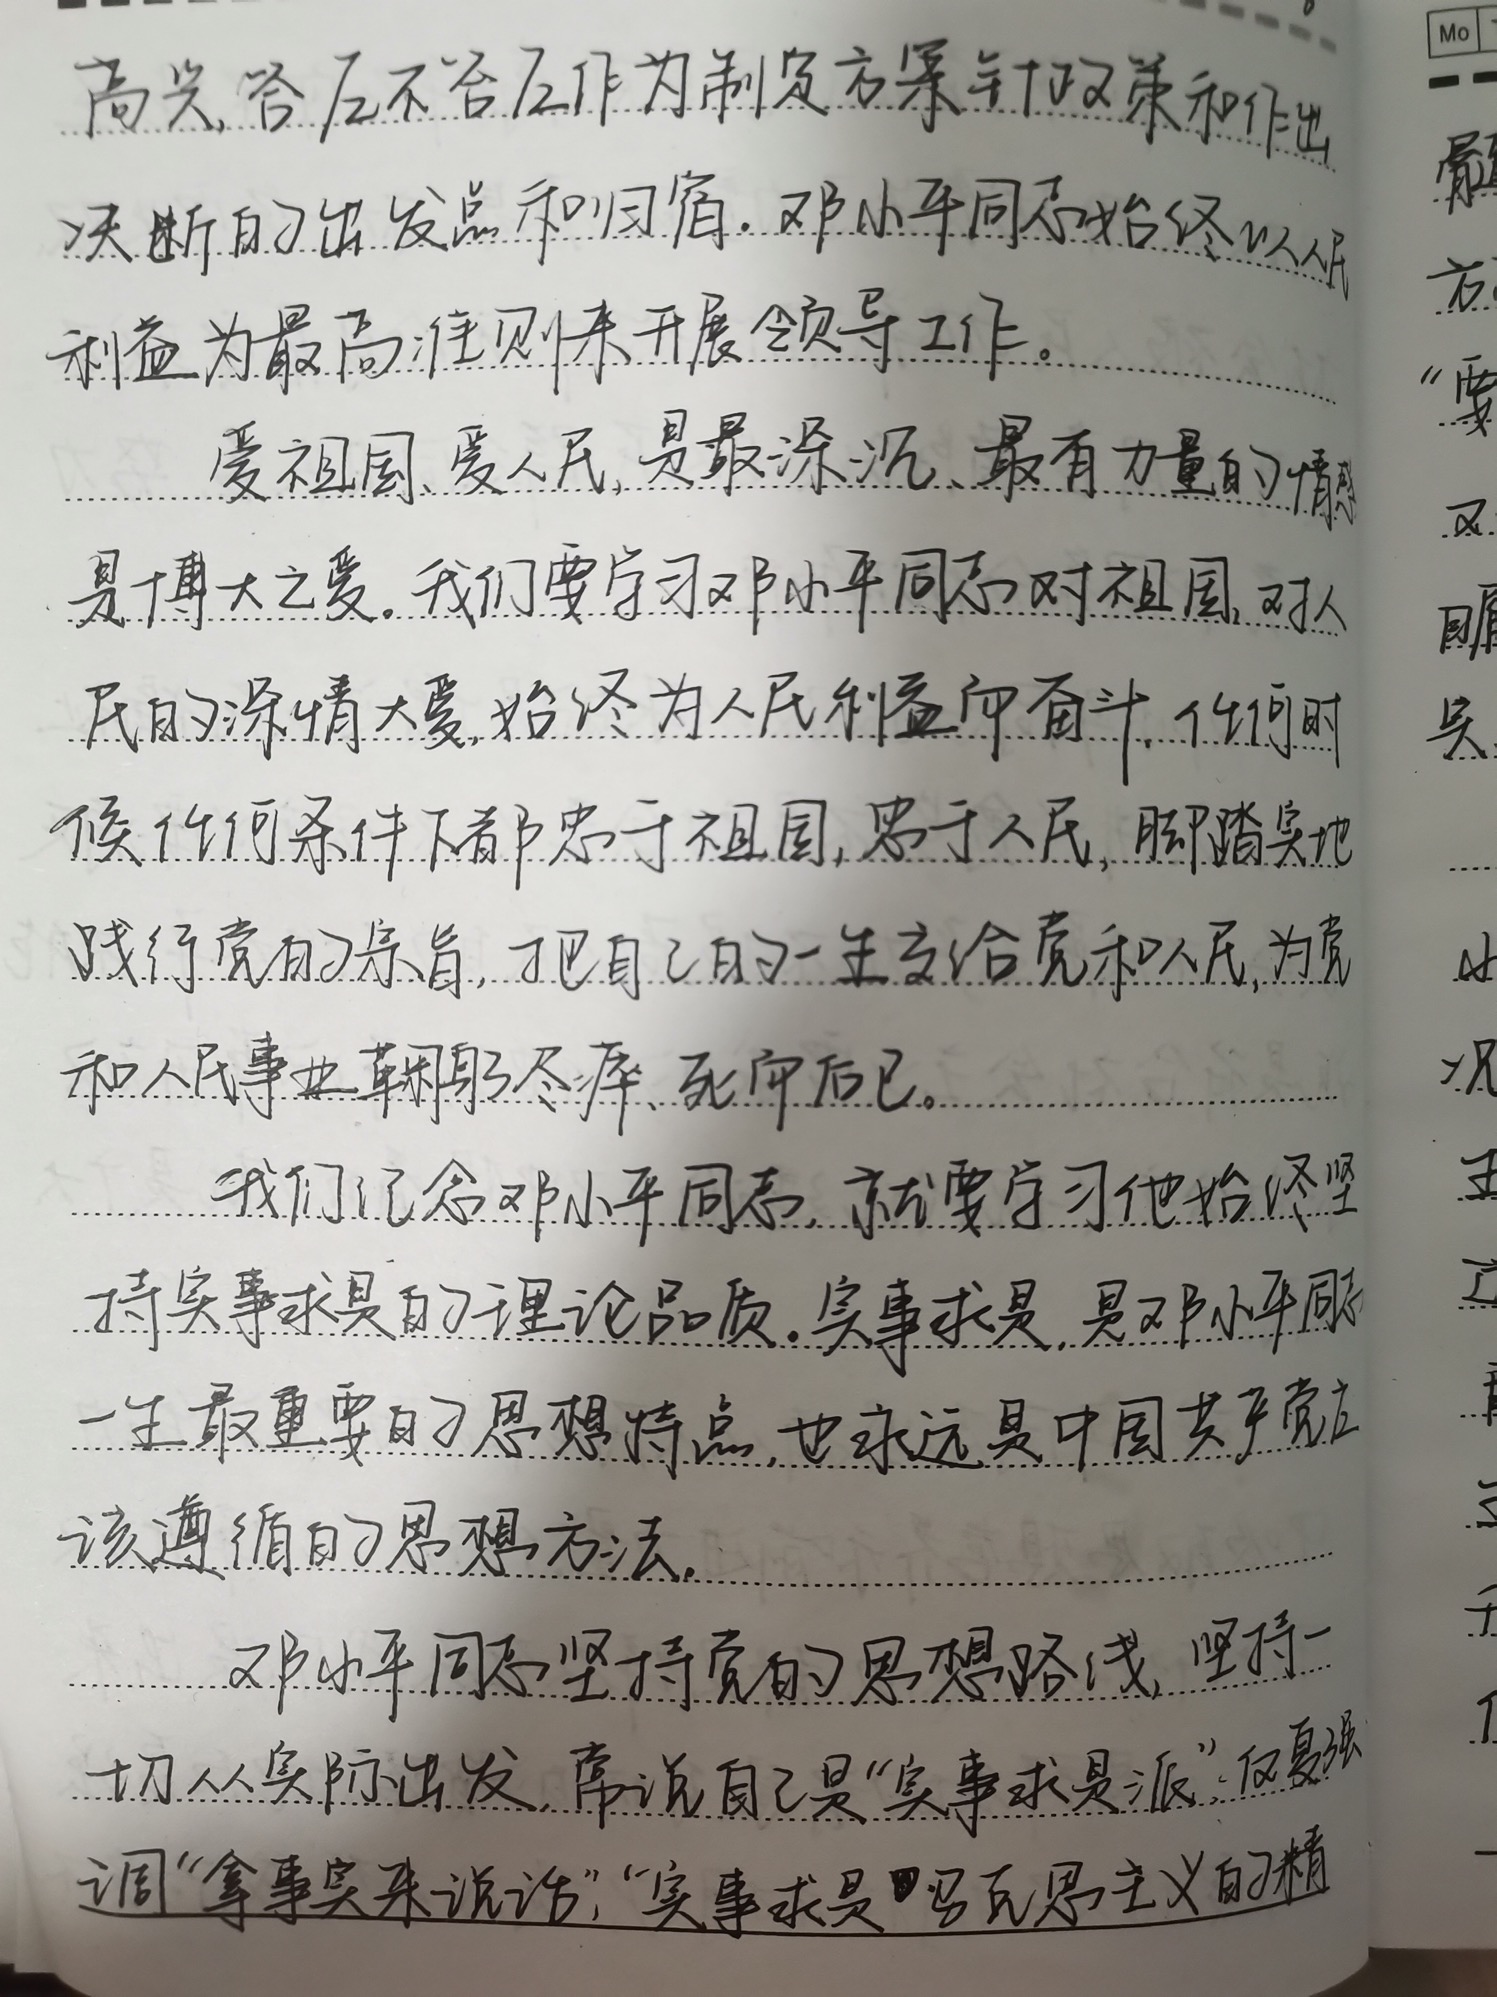 高兴,答应不答应作为制定方案针政策和作出
决断的出发点和归宿.邓小平同志始终以人民
利益为最高准则来开展领导工作。
爱祖国、爱人民,是最深沉、最有力量的情感
是博大之爱。我们要学习邓小平同志对祖国、对人
民的深情大爱,始终为人民利益而奋斗,任何时
候任何条件下都忠于祖国,忠于人民,脚踏实地
践行党的宗旨,把自己的一生交给党和人民,为党
和人民事业鞠躬尽瘁、死而后已。
我们纪念邓小平同志,就要学习他始终坚
持实事求是的理论品质.实事求是,是邓小平同志
一生最重要的思想特点,也永远是中国共产党应
该遵循的思想方法.
邓小平同志坚持党的思想路线,坚持一
切从实际出发,常说自己是“实事求是派”,反复强
调“拿事实来说话”,“实事求是 马克思主义的精
Mo
骨
方
“要
又
回
吴
小
况
王